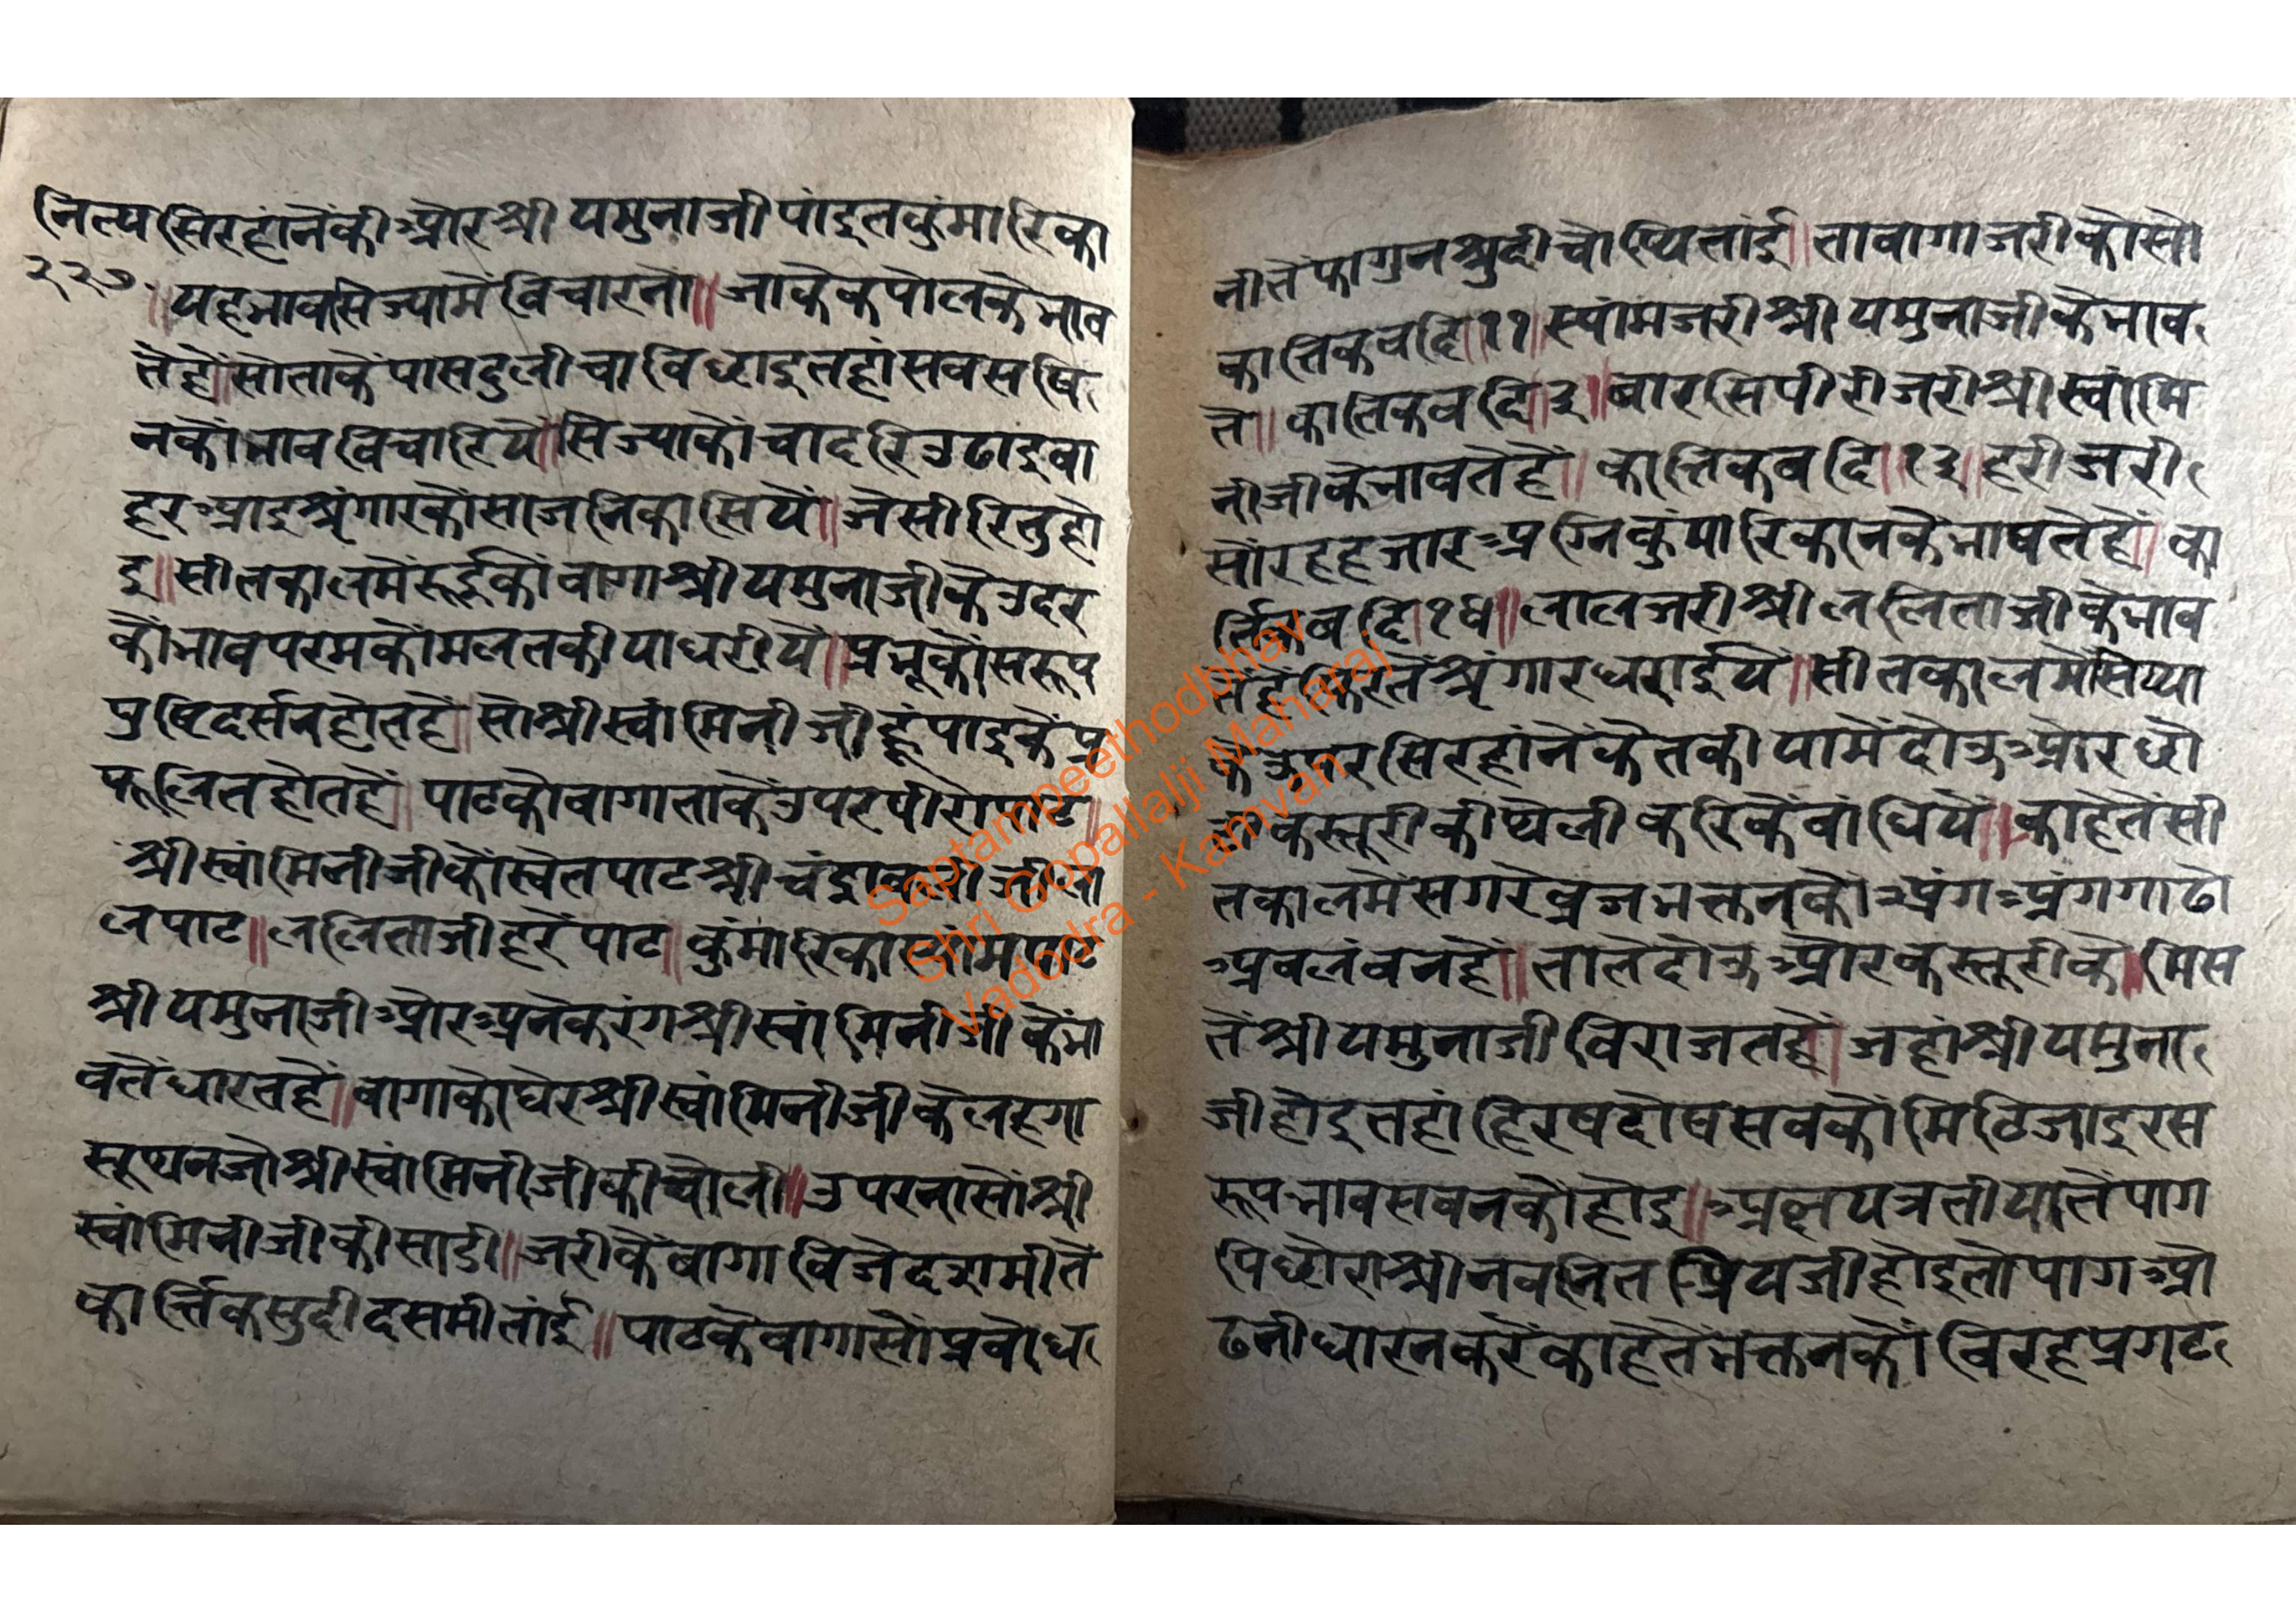 नित्य सिरहांनेंकी और श्री यमुनाजी पांइत कुंमारिका
२२७
॥ यहभावसिज्यामें विचारनों ॥ जाकेकपोलकेभाव
तेंहें ॥ सोताकें पासदुलीचा विछाइ तहां सवसषि
नकों भाव विचारियें ॥ सिज्याकों चादरि उढाइ वा
हर आइ श्रृंगारकों साजनिकासियें ॥ जेसी रितु हो
इ ॥ सीतकालमें रूईकों वागा श्री यमुनाजीके उदर
कों भाव परमकोंमलतकीया धरीयें ॥ प्रभूकों सरूप
प्रषि दर्सन होतहें ॥ सो श्री स्वांमिनीजी हूं पाइकें प्र
फूलित होतहें ॥ पाटको वागा ताकें उपर पीरो पाट ॥
श्री स्वांमिनीजीकों स्वेत पाट श्री चंद्रावलीजी ला
ल पाट ॥ ललिताजी हरें पाट ॥ कुंमारिका स्यांम पाट
श्री यमुनाजी और अनेक रंग श्री स्वांमिनीजी केंभा
वतें धारतहें ॥ वागाको घेर श्री स्वांमिनीजी के लहगा
सूथन जो श्री स्वांमिनीजीकी चोली ॥ उपरनासों श्री
स्वांमिनीजीकी साडी ॥ जरीकें वागा विजे दशमीतें
कार्त्तिक सुदी दसमीतांई ॥ पाटके वागासों प्रवोध
नीतें फागुन श्रुदी चोथितांई ॥ ता वागा जरीकोसो
कार्त्तिक वदि ॥ ११ ॥ स्यांम जरी श्री यमुनाजी के भाव
तें ॥ कार्तिक वदि ॥ बारसि पीरी जरी श्री स्वांमि
नीजीके भावतेंहें ॥ कार्त्तिक वदि ॥ १३ ॥ हरी जरी
सोंरहहजार अग्निकुंमारिकानके भावतेंहें ॥ का
र्त्तिक वदि १४ ॥ लाल जरी श्री ललिताजीके भाव
तेंहें श्रृंगार धराईयें ॥ सीतकालमें सिज्या
के उपर सिरहांनेंकेतकीयामें दोउ ओर थो
री कस्तूरीकी थेली करिकें वांधियें ॥ काहेतें सी
तकालमें सगरे व्रजभक्तनकों अंग अंग गाढो
अवलंवनहें ॥ तातें दोउ ओर कस्तूरीके ॥ मिस
तें श्री यमुनाजी विराजतहें ॥ जहां श्री यमुना
जी होइ तहां हिरषदोष सवकों मिटिजाइ रस
रूप भाव सवनकों होइ ॥ अक्षयत्रतीयातें पाग
पिछोरा श्री नवनित प्रियजी होइ तो पाग ओ
ढनी धारन करें काहेतें भक्तनकों विरह प्रगट